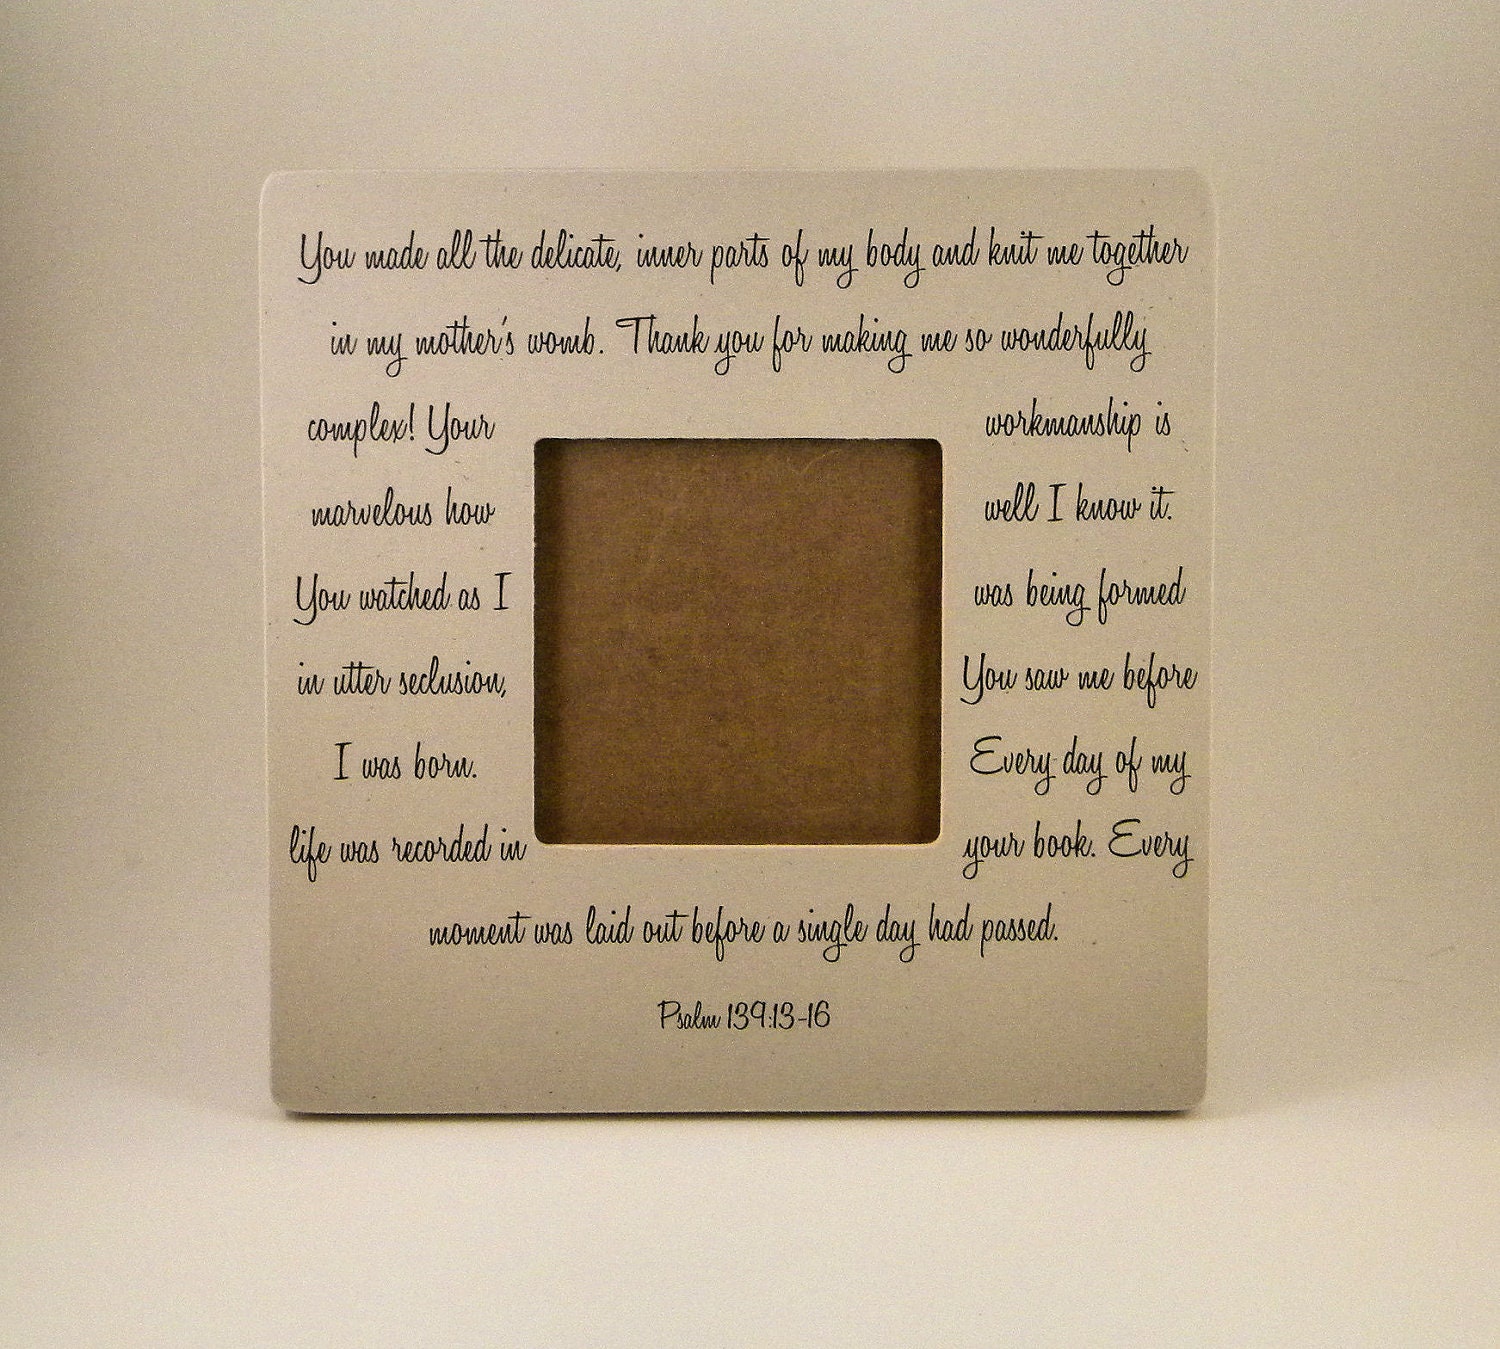 You made all the delicate, inner parts of my body and knit me together
in my mother's womb. Thank you for making me so wonderfully
complex! Your workmanship is
marvelous how well I know it.
You watched as I was being formed
in utter seclusion, You saw me before
I was born. Every day of my
life was recorded in your book. Every
moment was laid out before a single day had passed.
Psalm 139:13-16